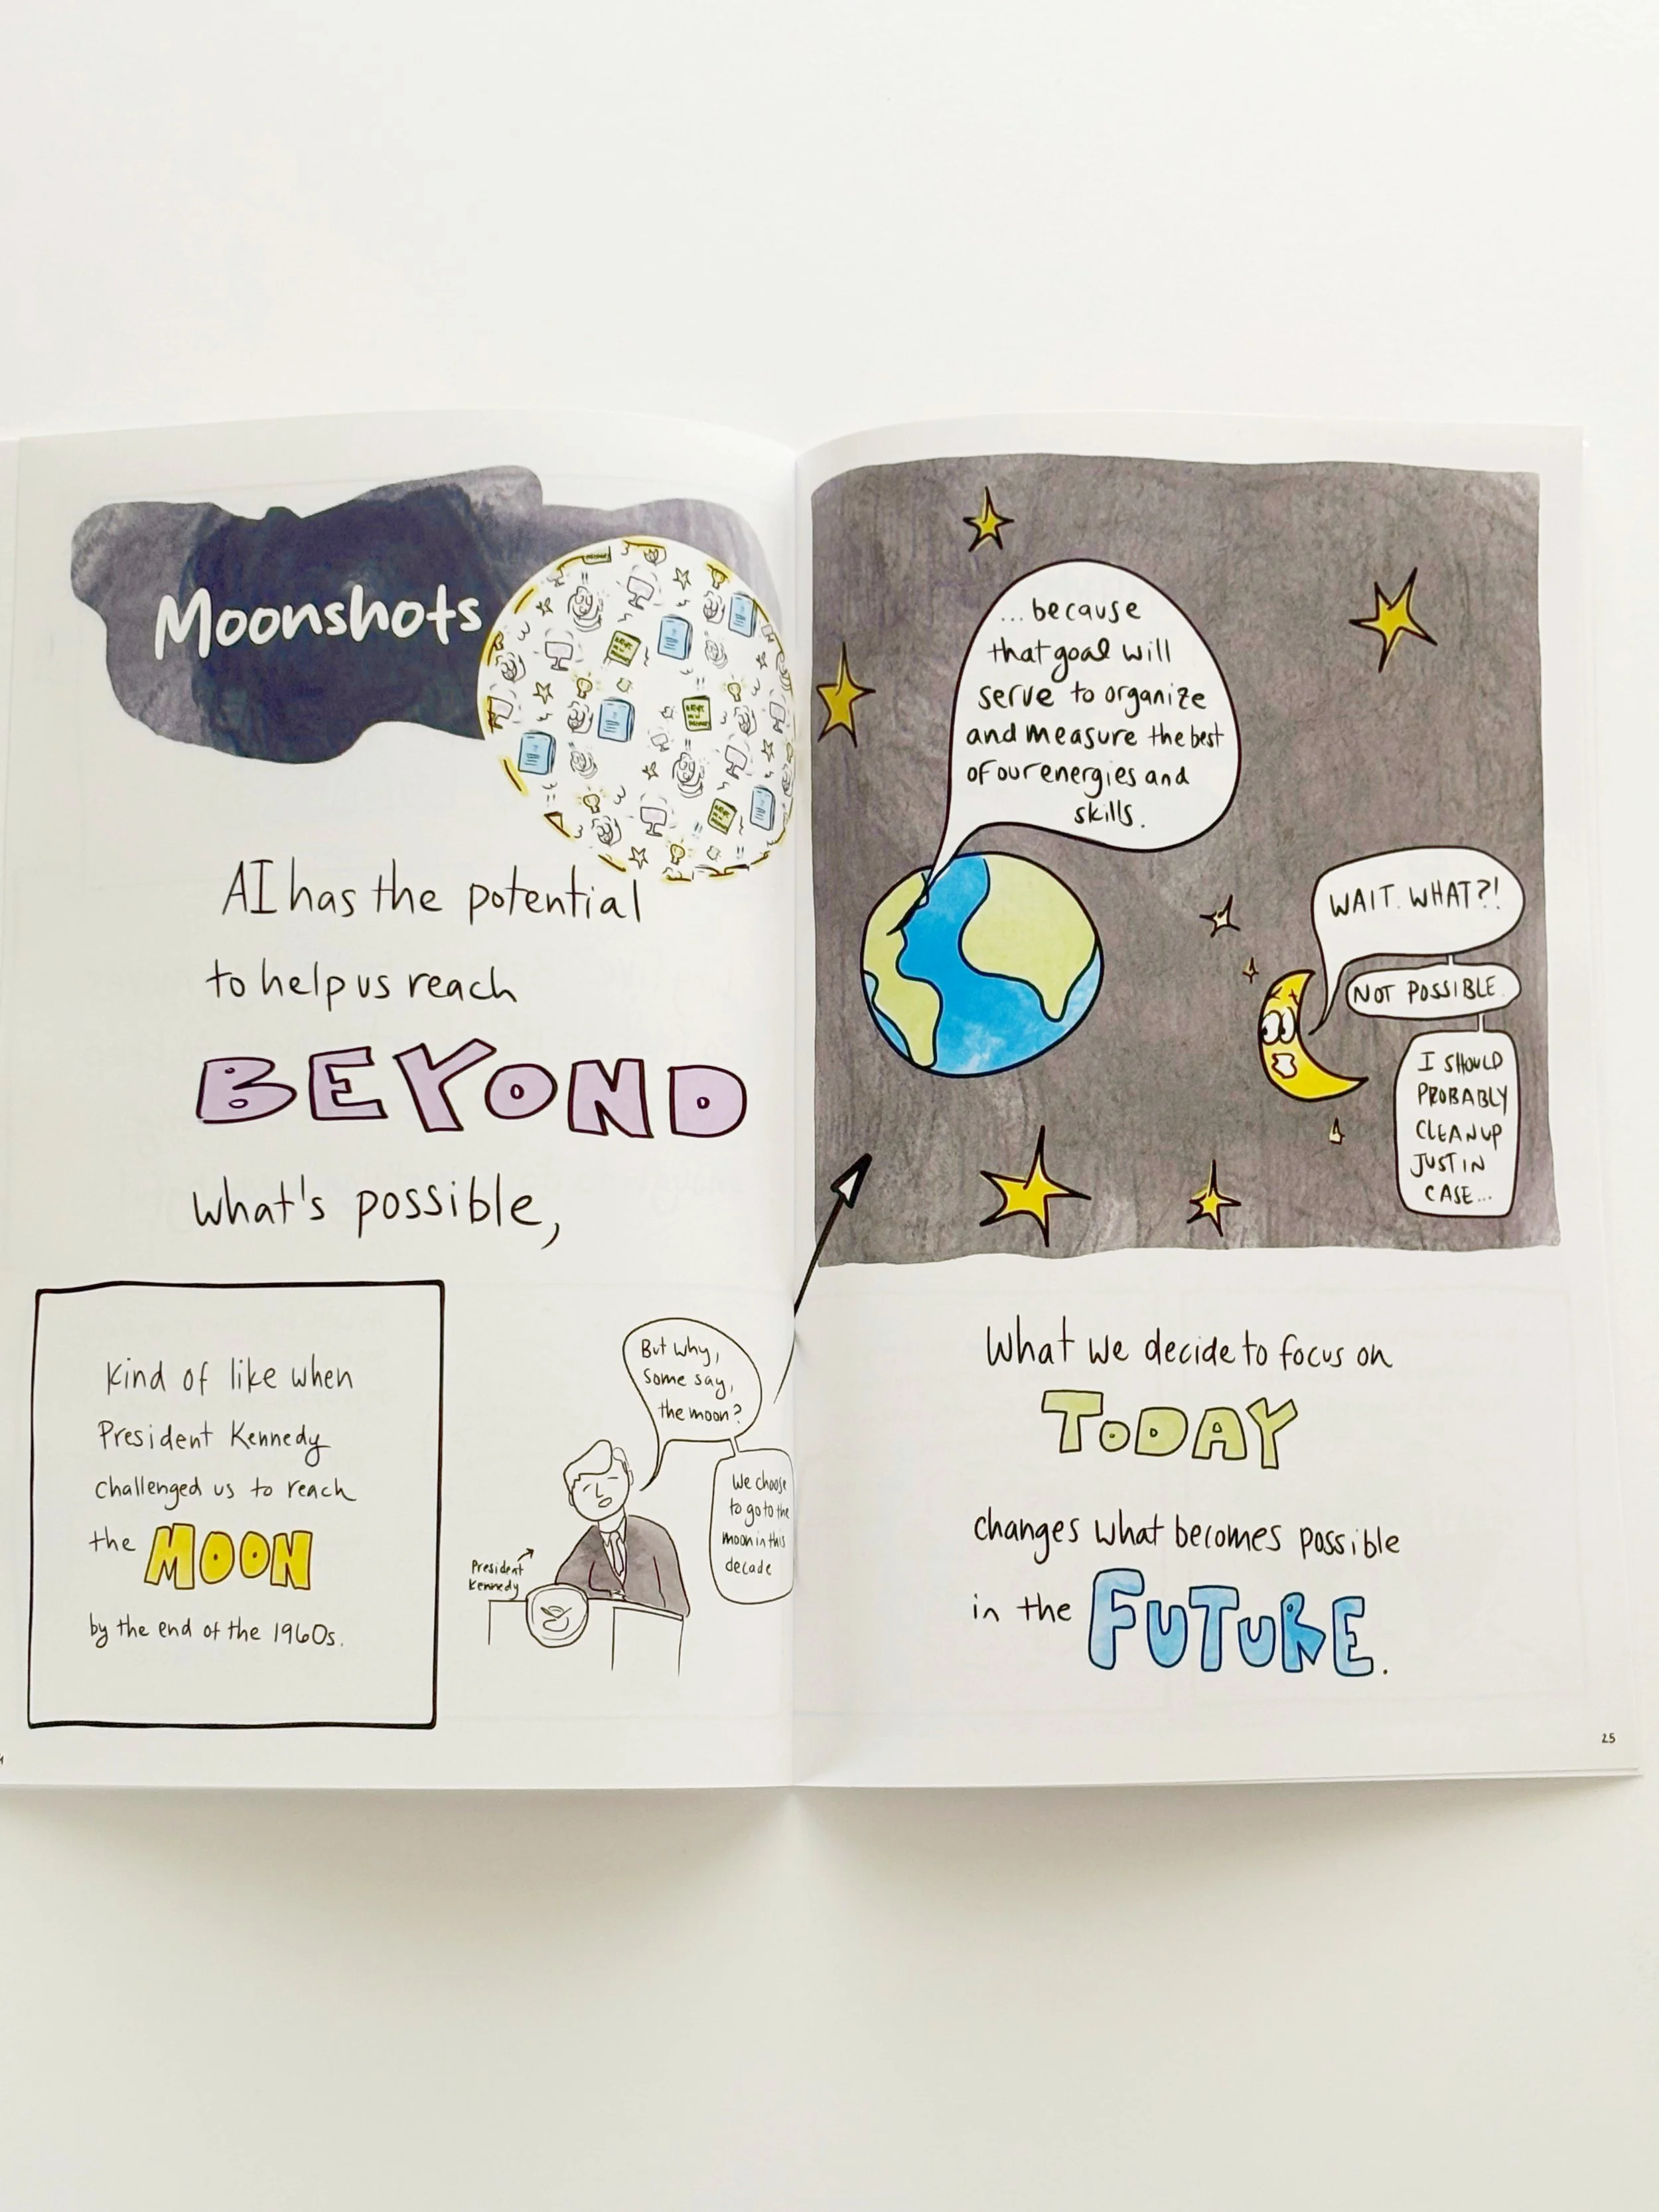 Moonshots
AI has the potential
to help us reach
BEYOND
what's possible,
Kind of like when
President Kennedy
challenged us to reach
the MOON
by the end of the 1960s.
But why,
some say,
the moon?
We choose
to go to the
moon in this
decade
President
Kennedy
...because
that goal will
serve to organize
and measure the best
of our energies and
skills.
WAIT. WHAT?!
NOT POSSIBLE.
I SHOULD
PROBABLY
CLEAN UP
JUST IN
CASE...
What we decide to focus on
TODAY
changes what becomes possible
in the FUTURE.
25